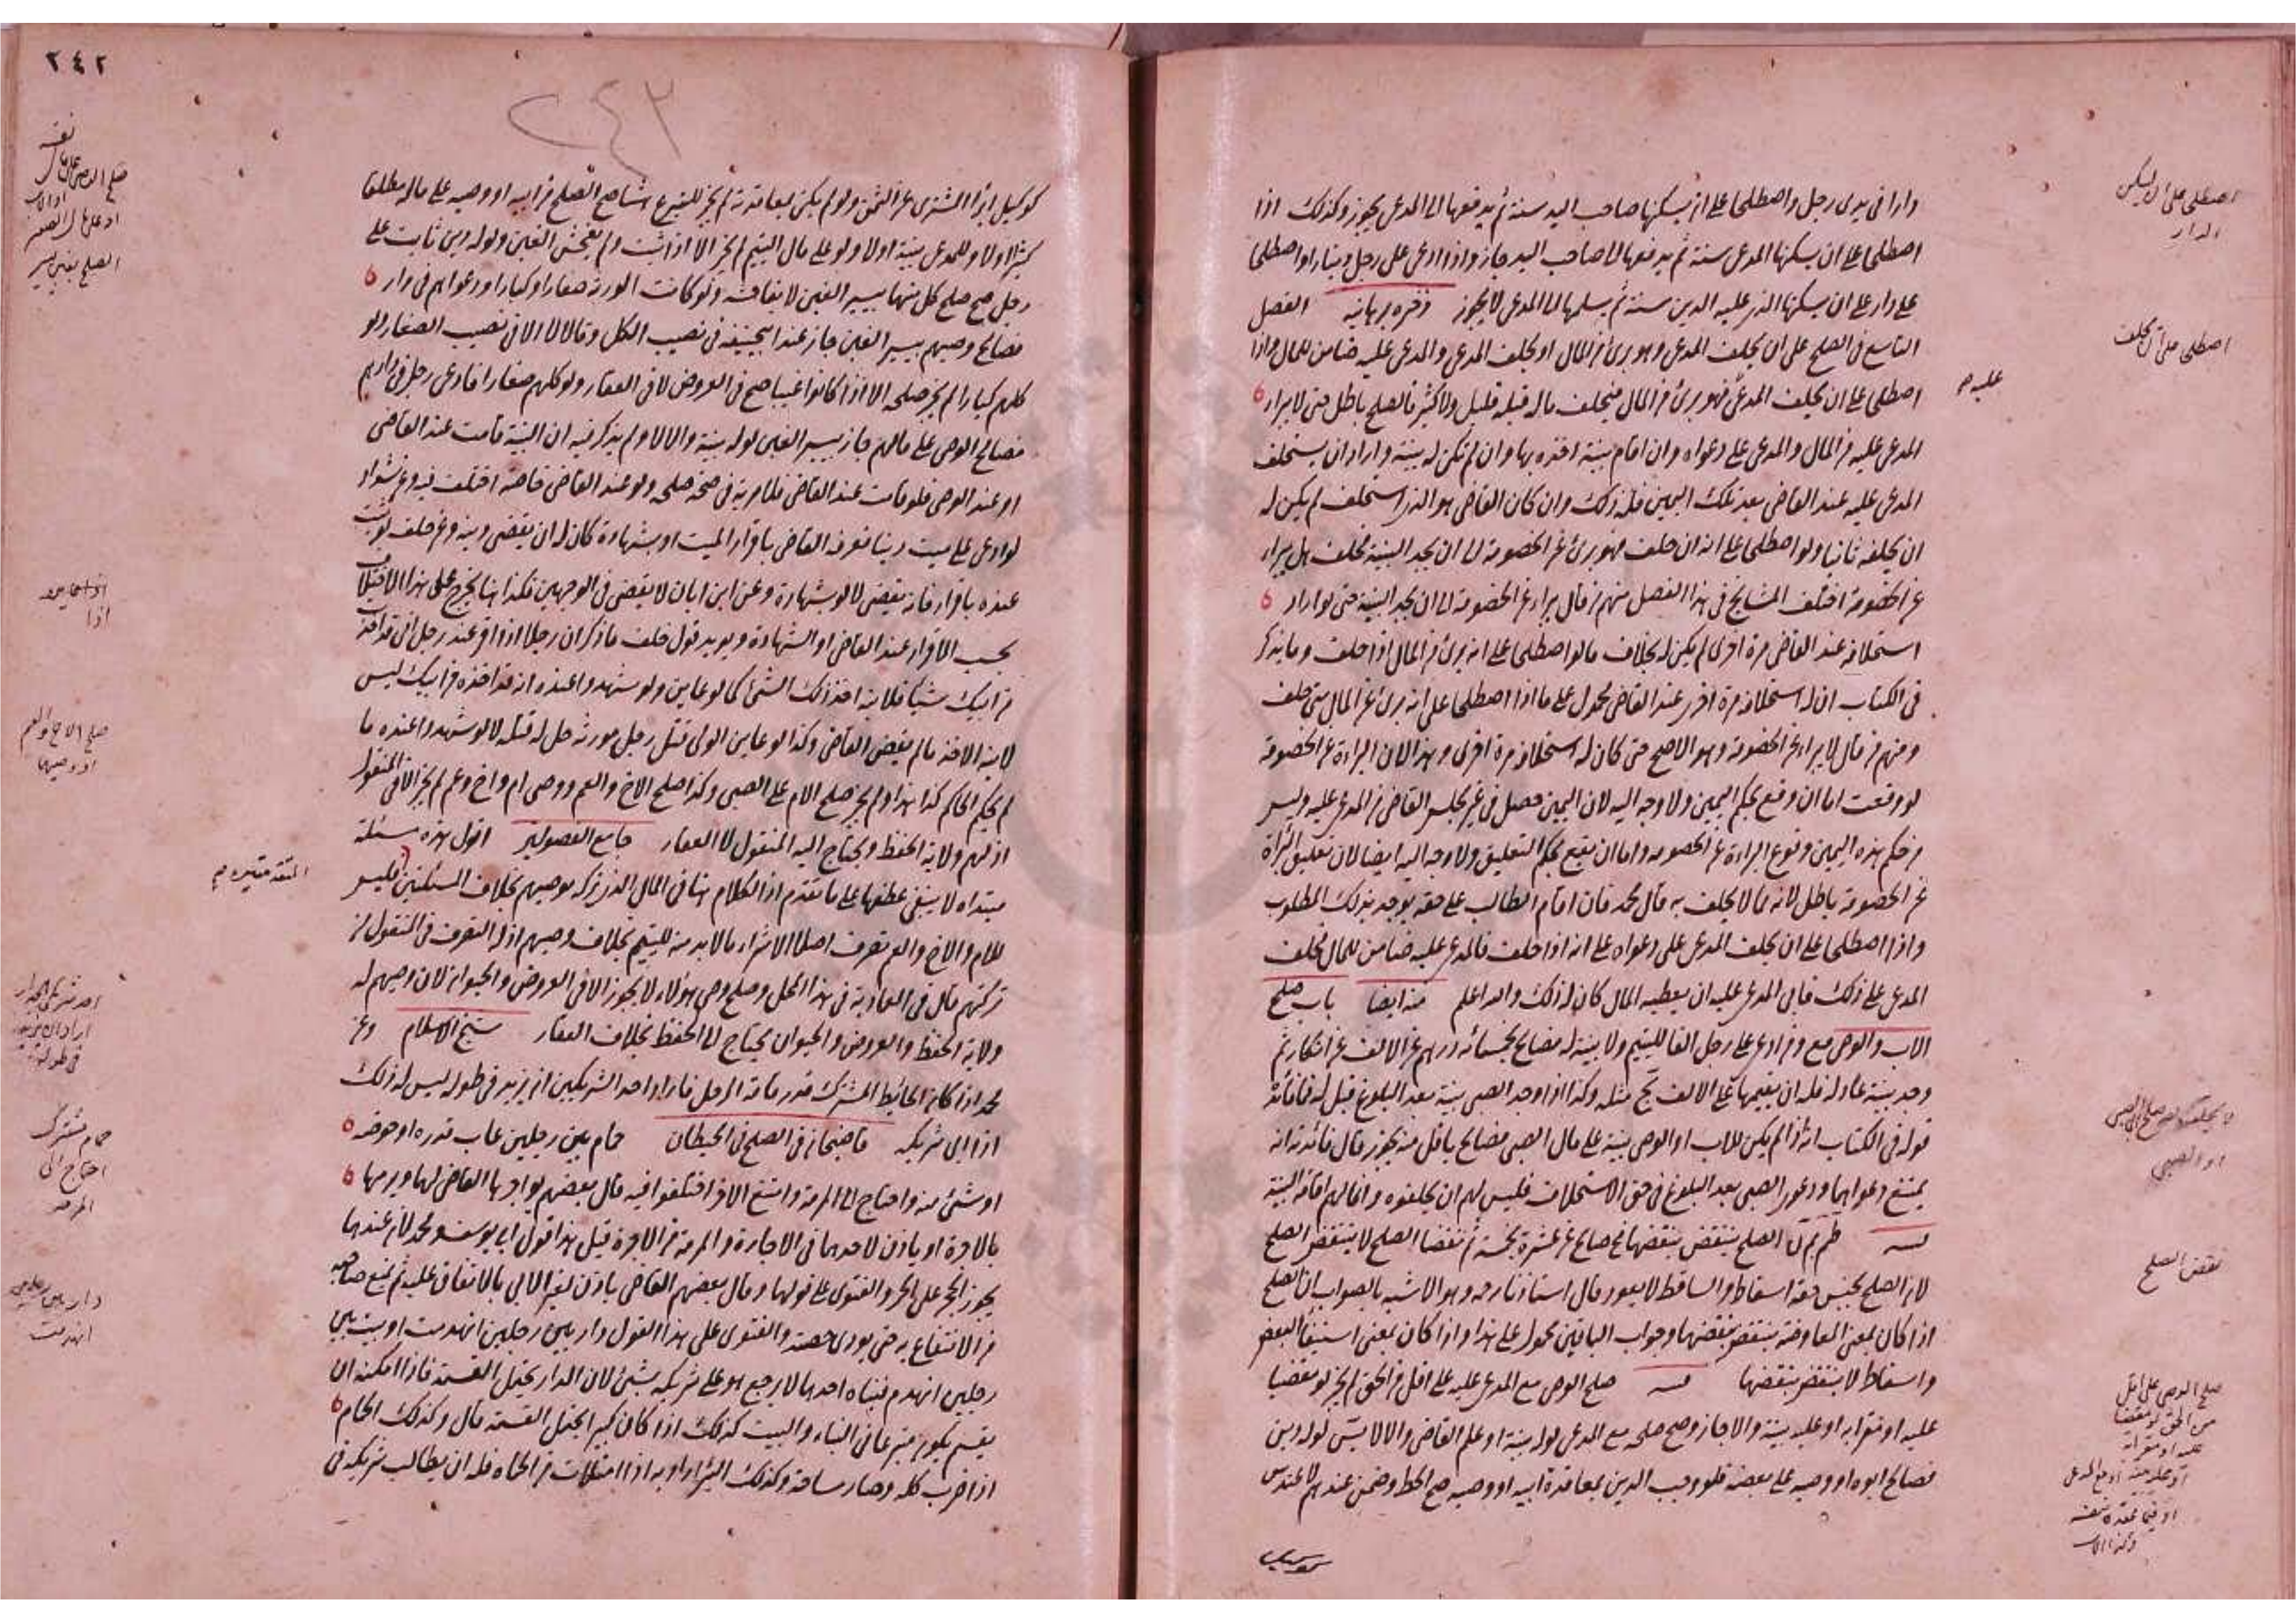 دارا فى يدى رجل واصطلحا على ان يسكنها صاحب اليد سنة ثم يدفعها الى المدعى يجوز وكذلك اذا
اصطلحا على ان يسكنها المدعى سنة ثم يدفعها الى صاحب اليد جاز واذا ادعى على رجل دينارا واصطلحا
على دار على ان يسكنها الذى عليه الدين سنة ثم يسلمها الى المدعى لا يجوز ذخيره برهانيه الفصل
التاسع فى الصلح على ان يحلف المدعى وهو برئ من المال او يحلف المدعى والمدعى عليه ضامن للمال واذا
اصطلحا على ان يحلف المدعى فهو برئ من المال فيحلف ماله قبله قليل ولا كثير فالصلح باطل حتى لا يبراء
المدعى عليه من المال والمدعى على دعواه وان اقام بينة اخذه بها وان لم تكن له بينة واراد ان يستحلف
المدعى عليه عند القاضى بعد تلك اليمين فله ذلك وان كان القاضى هو الذى استحلف لم يكن له
ان يحلفه ثانيا ولو اصطلحا على انه ان حلف فهو برئ عن الخصومة الى ان يجد البينة فحلف هل يبراء
عن الخصومة اختلف المشايخ فى هذا الفصل منهم من قال يبراء عن الخصومة الى ان يجد البينة حتى لو اراد
استحلافه عند القاضى مرة اخرى لم يكن له بخلاف ما لو اصطلحا على انه برئ من المال اذا حلف وما يذكر
فى الكتاب ان له استحلافه مرة اخرى عند القاضى محمول على ما اذا اصطلحا على انه برئ عن المال متى حلف
ومنهم من قال لا يبراء عن الخصومة وهو الاصح حتى كان له استحلافه مرة اخرى وهذا لان البراءة عن الخصومة
لو وقعت اما ان وقع بحكم اليمين ولا وجه اليه لان اليمين حصل فى غير مجلس القاضى من المدعى عليه وليس
من حكم هذه اليمين وقوع البراءة عن الخصومة واما ان يقع بحكم التعليق ولا وجه اليه ايضا لان تعليق البراة
عن الخصومة باطل لانه مما لا يحلف به قال محمد فان اقام الطالب على حقه يوجد بذلك المطلوب
واذا اصطلحا على ان يحلف المدعى على دعواه على انه اذا حلف فالمدعى عليه ضامن للمال فحلف
المدعى على ذلك فابى المدعى عليه ان يعطيه المال كان له ذلك والله اعلم منه ايضا باب صلح
الاب والوصى مع ومن ادعى على رجل الفا لليتيم ولا بينة له فصالح بخمسمائة درهم عن الالف عن انكار ثم
وجد بينة عادلة فله ان يقيمها على الالف مثله وكذا اذا وجد الصبى بينة بعد البلوغ قيل له فما فائدة
قوله فى الكتاب انه اذا لم يكن للاب او الوصى بينة على مال الصبى فصالح باقل منه يجوز قال فائدته انه
يمتنع دعواهما ودعوى الصبى بعد البلوغ فى حق الاستحلاف فليس لهم ان يحلفوه وانما لهم اقامة البينة
الصلح ينتقض بنقضهما صالح عن عشرة بخمسة ثم نقضا الصلح لا ينتقض الصلح
لان الصلح بجنس حقه اسقاط والساقط لا يعود قال استاذنا رحه وهو الاشبه بالصواب ان الصلح
اذا كان بمعنى المعاوضة ينتقض بنقضهما وجواب الباقين محمول على هذا واذا كان بمعنى استيفاء البعض
واسقاط لا ينتقض بنقضهما صلح الوصى مع المدعى عليه على اقل من الحق لم يجز لو مقضيا
عليه او مقرا به او عليه بينة والا جاز وصح صلحه مع المدعى لو له بينة او علم القاضى والا لا لو له دين
فصالح ابوه او وصيه على بعضه فلو وجب الدين بمعاقدة ابيه او وصيه صح الحط وضمن عندهم لا عند س
اصطلحا على ان يسكن
الدار
اصطلحا على ان يحلف
عليه صح
او الصبى
نقض الصلح
صلح الوصى على اقل
من الحق لو مقضيا
عليه او مقرا به
٢٤٢
٢٤٢
كوكيل ابرأ المشترى عن الثمن ولو لم يكن بمعاقدته لم يجز للتبرع صح الصلح من ابيه او وصيه على ماله مطلقا
او لا وللمدعى بينة او لا ولو على مال اليتيم لم يجز الا اذا ثبت ولم يفحش الغبن ولو له دين ثابت على
رجل صح صلح كل منهما بيسير الغبن لا بفاحشه ولو كانت الورثة صغارا وكبارا ودعواهم فى دار
فصالح وصيهم بيسير الغبن جاز عند ابيحنيفة فى نصيب الكل وقالا لا الا فى نصيب الصغار ولو
كلهم كبارا لم يجز صلحه الا اذا كانوا غيبا صح فى العروض لا فى العقار ولو كلهم صغارا فادعى رجل فى دارهم
فصالح الوصى على مالهم جاز بيسير الغبن لو له بينة والا لا ولم يذكر فيه ان البينة قامت عند القاضى
او عند الوصى فلو قامت عند القاضى فلا مرية فى صحة صلحه ولو عند القاضى خاصة اختلف فيه وعن شداد
لو ادعى على ميت دينا فعرفه القاضى باقرار الميت او بشهادة كان له ان يقضى دينه وعن خلف لو ثبت
عنده باقرار فانه يقضى لا لو بشهادة وعن ابن ابان لا يقضى فى الوجهين فكذا هنا يخرج على هذا الاختلاف
بحسب الاقرار عند القاضى او الشهادة ويويد قول خلف ما ذكر ان رجلا اذا اقر عند رجل انى قد اخذت
من ابيك شيئا فلابنه اخذ ذلك الشئ كما لو عاين ولو شهدوا عنده انه قد اخذه من ابيك ليس
لابنه الاخذ ما لم يقض القاضى وكذا لو عاين الولى قتل رجل مورثه حل له قتله لا لو شهدوا عنده ما
لم يحكم الحاكم كذا هذا ولم يجز صلح الام على الصبى وكذا صلح الاخ والعم ووصى ام واخ وعم لم يجز الا فى المنقول
اذ لهم ولاية الحفظ ويحتاج اليه المنقول لا العقار جامع الفصولين اقول هذه مسئلة
مبتداه لا ينبغى عطفها على ما تقدم اذ الكلام هنا فى المال الذى تركه موصيهم بخلاف فليس
للام والاخ والعم تصرف اصلا الا شراء ما لا بد منه لليتيم بخلاف وصيهم اذ له التصرف فى المنقول من
تركتهم قال فى العمادية فى هذا المحل وصلح وصى هؤلاء لا يجوز الا فى العروض والحيوان لان وصيهم له
ولاية الحفظ والعروض والحيوان يحتاج الى الحفظ بخلاف العقار شيخ الاسلام وعن
محمد اذا كان الحائط المشترك قدر قامة الرجل فاراد احد الشريكين ان يزيد فى طوله ليس له ذلك
اذا ابى شريكه قاضيخان فى الصلح فى الحيطان حمام بين رجلين عاب قدره او حوضه
او شئ منه واحتاج الى المرمة وامتنع الاخر اختلفوا فيه قال بعضهم يواجرها القاضى لهما ويرمها
بالاجرة او ياذن لاحدهما فى الاجارة والمرمة من الاجرة قيل هذا قول ابى يوسف ومحمد لان عندهما
يجوز الحجر على الحر والفتوى على قولهما وقال بعضهم القاضى ياذن لغير الابى بالانفاق عليه ثم يمنع صاحبه
من الانتفاع به حتى يودى حصته والفتوى على هذا القول دار بين رجلين انهدمت او بيت بين
رجلين انهدم فبناه احدهما لا يرجع هو على شريكه بشئ لان الدار يحتمل القسمة فاذا امكنه ان
يقسم يكون متبرعا فى البناء والبيت كذلك اذا كان كبيرا يحتمل القسمة قال وكذلك الحمام
اذا خرب كله وصار ساحة وكذلك البئر اذا امتلات من الحماة فله ان يطالب شريكه فى
صلح الاخ والعم
حمام مشترك
احتاج الى
المرمة
دار بين رجلين
انهدمت